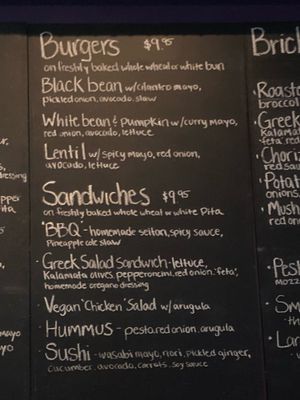 Burgers $9.95
on freshly baked whole wheat or white bun
Black bean w/cilantro mayo,
pickled onion, avocado, slaw
White bean & Pumpkin w/curry mayo,
red onion, avocado, lettuce
Lentil w/ spicy mayo, red onion,
avocado, lettuce
Sandwiches $9.95
on freshly baked whole wheat or white Pita
·"BBQ" - homemade seitan, spicy sauce,
Pineapple cole slaw
·Greek Salad Sandwich - lettuce,
Kalamata olives, pepperoncini, red onion, 'feta',
homemade oregano dressing
·Vegan 'Chicken' Salad w/ arugula
·Hummus - pesto, red onion, arugula
·Sushi - wasabi mayo, nori, pickled ginger,
cucumber, avocado, carrots, soy sauce
Brick
Roaste
broccol
Greek
Kalamata
'feta' red
Choriz
red sau
Potat
onions,
Mush
red oni
Pest
mozz
Sm
the
La
dressing
pepper
Pita
mayo
yo